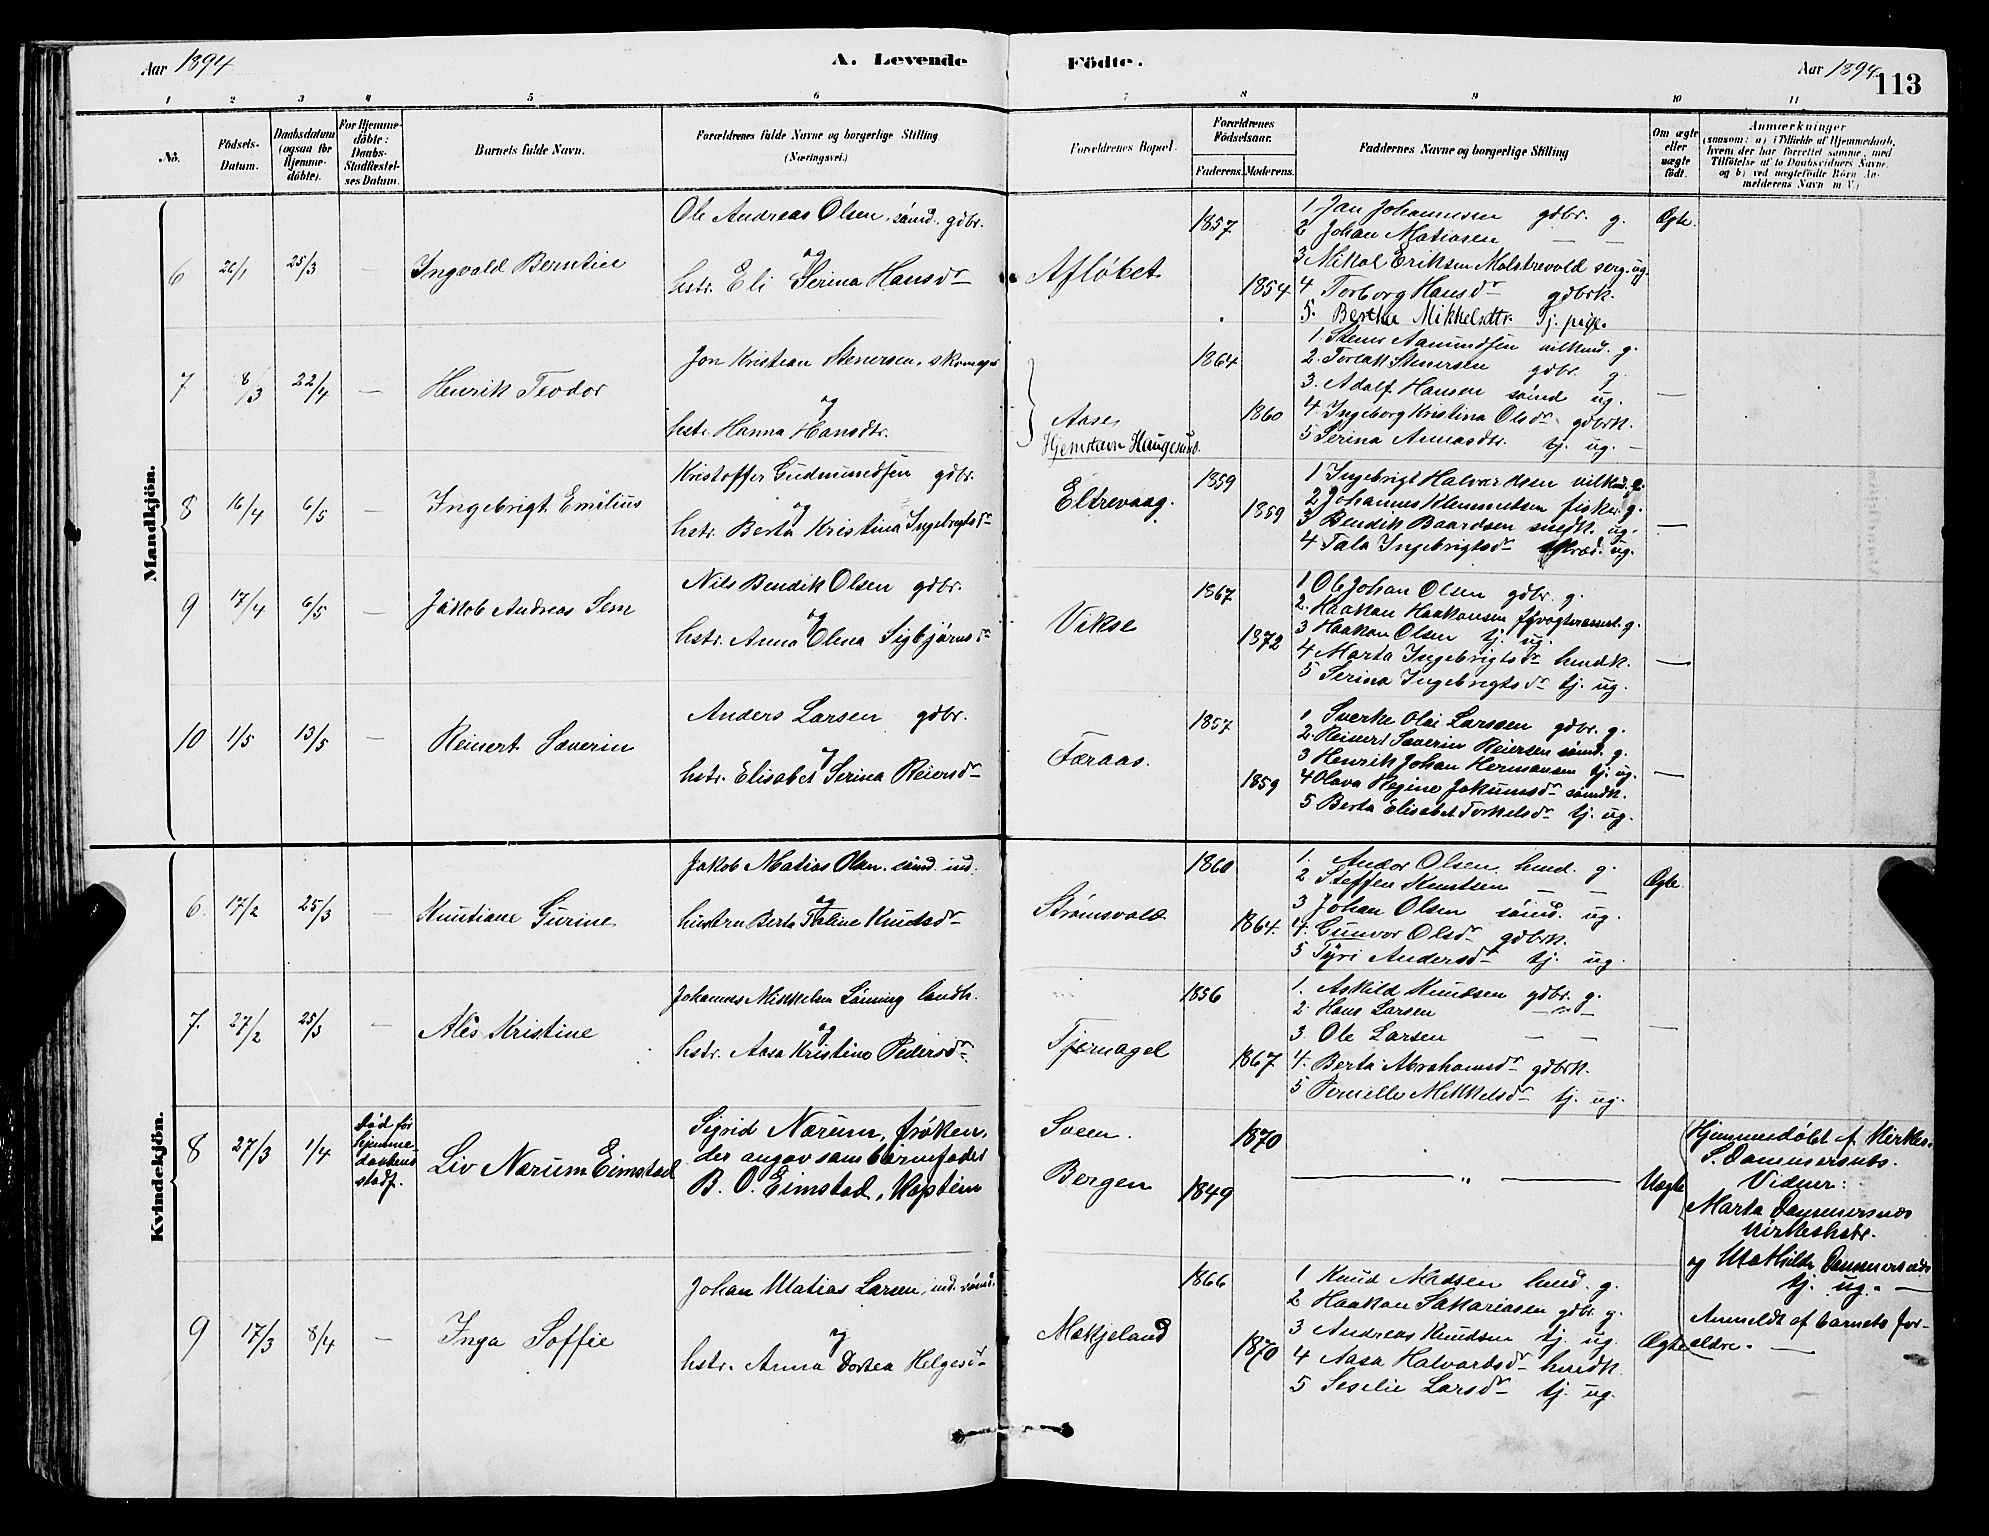 Aar 1894
A. Levende Födte.
Aar 1894
113
1 2 3 4 5 6 7 8 9 10 11
No.
Födsels-Datum.
Daabsdatum (ogsaa for Hjemme-döbte).
For Hjemme-döbte: Daabs-Stadfæstel-ses Datum.
Barnets fulde Navn.
Forældrenes fulde Navne og borgerlige Stilling
(Næringsvei.)
Forældrenes Bopæl.
Forældrenes Födselsaar.
Faderens. Moderens.
Faddernes Navne og borgerlige Stilling
Om ægte eller uægte födt.
Anmærkninger
(saasom: a) i Tilfælde af Hjemmedaab, hvem der har forrettet samme, med Tilföielse af to Daabsvidners Navne, og b) ved uægtefödte Börn Anmelderens Navn m. V.)
Mandkjön.
6 26/1 25/3 — Ingvald Berntin
Ole Andreas Olsen, sömd. gdbr.
og
hstr. Eli Serina Hansdr
Aflöbet
1857
1854
1 Jan Johannesen gdbr. g.
2 Johan Matiasen — —
3 Mikal Eriksen Mølstrevold serg. ug.
4 Torborg Hansdr gdbrk.
5. Berthe Mikkelsdtr. Tj. pige.
Ægte
7 8/3 22/4 — Henrik Teodor
Jon Kristian Stenersen, skomager
og
hstr. Hanna Hansdtr.
Aase,
Hjemstavn Haugesund.
1864
1860
1. Stener Aamundsen vilkmd. g.
2. Torlak Stenersen gdbr. g.
3. Adolf Hansen sömd ug.
4. Ingeborg Kristina Olsdr gdbrk.
5 Serina Annasdtr. tj. ug.
—
8 16/4 6/5 — Ingebrigt Emilius
Kristoffer Gudmundsen gdbr.
og
hstr. Berta Kristina Ingebrigtsdr
Eltrevaag.
1859
1859
1 Ingebrigt Halvardsen vilkmd. g.
2 Johannes Klemmetsen fisker. g.
3 Bendik Baardsen snedk. ug.
4 Tala Ingebrigtsdr skræd. ug.
—
9 17/4 6/5 — Jakob Andreas Sem
Nils Bendik Olsen gdbr.
og
hstr. Anna Olena Sigbjörnsdr
Vikse
1867
1872
1 Ole Johan Olsen gdbr. g.
2. Haakon Haakonsen g.
3 Haakon Olsen tj. ug.
4 Marta Ingebrigtsdr hmdk.
5 Serina Ingebrigtsdr tj. ug.
—
10 1/5 13/5 — Reinert Severin
Anders Larsen gdbr.
og
hstr. Elisabet Serina Reiersdr
Færaas.
1857
1859
1 Sverke Olai Larssen gdbr. g.
2. Reinert Severin Reiersen sömd. g.
3 Henrik Johan Hermansen tj. ug.
4 Olava Regine Jokumsdr sömdk.
5 Berta Elisabet Torkelsdr tj. ug.
—
Kvindekjön.
6. 17/2 25/3 — Knutiane Gurine
Jakob Matias Olsen. sömd. ind.
og
hustru Berta Taline Knutsdr
Strömsvold
1860
1864.
1. Andor Olsen hmd. g.
2 Steffen Knutsen — —
3 Johan Olsen sömd. ug.
4. Gunvor Olsdr gdbrk.
5 Tyri Andersdr tj. ug.
Ægte
7. 27/2 25/3 — Ales Kristine
Johannes Mikkelsen Lönning landh.
og
hstr. Aasa Kristine Pedersdr
Tjernagel
1856
1867
1. Askild Knudsen gdbr. g.
2. Hans Larsen — —
3. Ole Larsen — —
4. Berta Abrahamsdr gdbrk.
5 Pernille Mikkelsdr tj. ug.
—
8 27/3 1/4 död för hjemmedaabens stadf. Liv Nærum Eimstad
Sigrid Nærum, fröken,
der angav som barnefader
B. O. Eimstad, Kaptein
Sveen.
Bergen
1870
1849
— „ —
Uægte
Hjemmedöbt af Kirkes.
S. Dammersnes.
Vidner:
Marta Dammersnes
kirkeshstr.
og Mathilde Dammersnes
tj. ug. —
Anmeldt af barnets forældre. —
9 17/3 8/4 — Inga Soffie
Johan Matias Larsen, ind. sömd.
og
hstr. Anna Dortea Helgesdr
Mækjeland
1866
1870
1 Knud Madsen hmd. g.
2 Haakon Sakariasen gdbr. g.
3 Andreas Knudsen tj. ug.
4 Aasa Halvardsdr hmdk.
5 Seselie Larsdr tj. ug.
Ægte